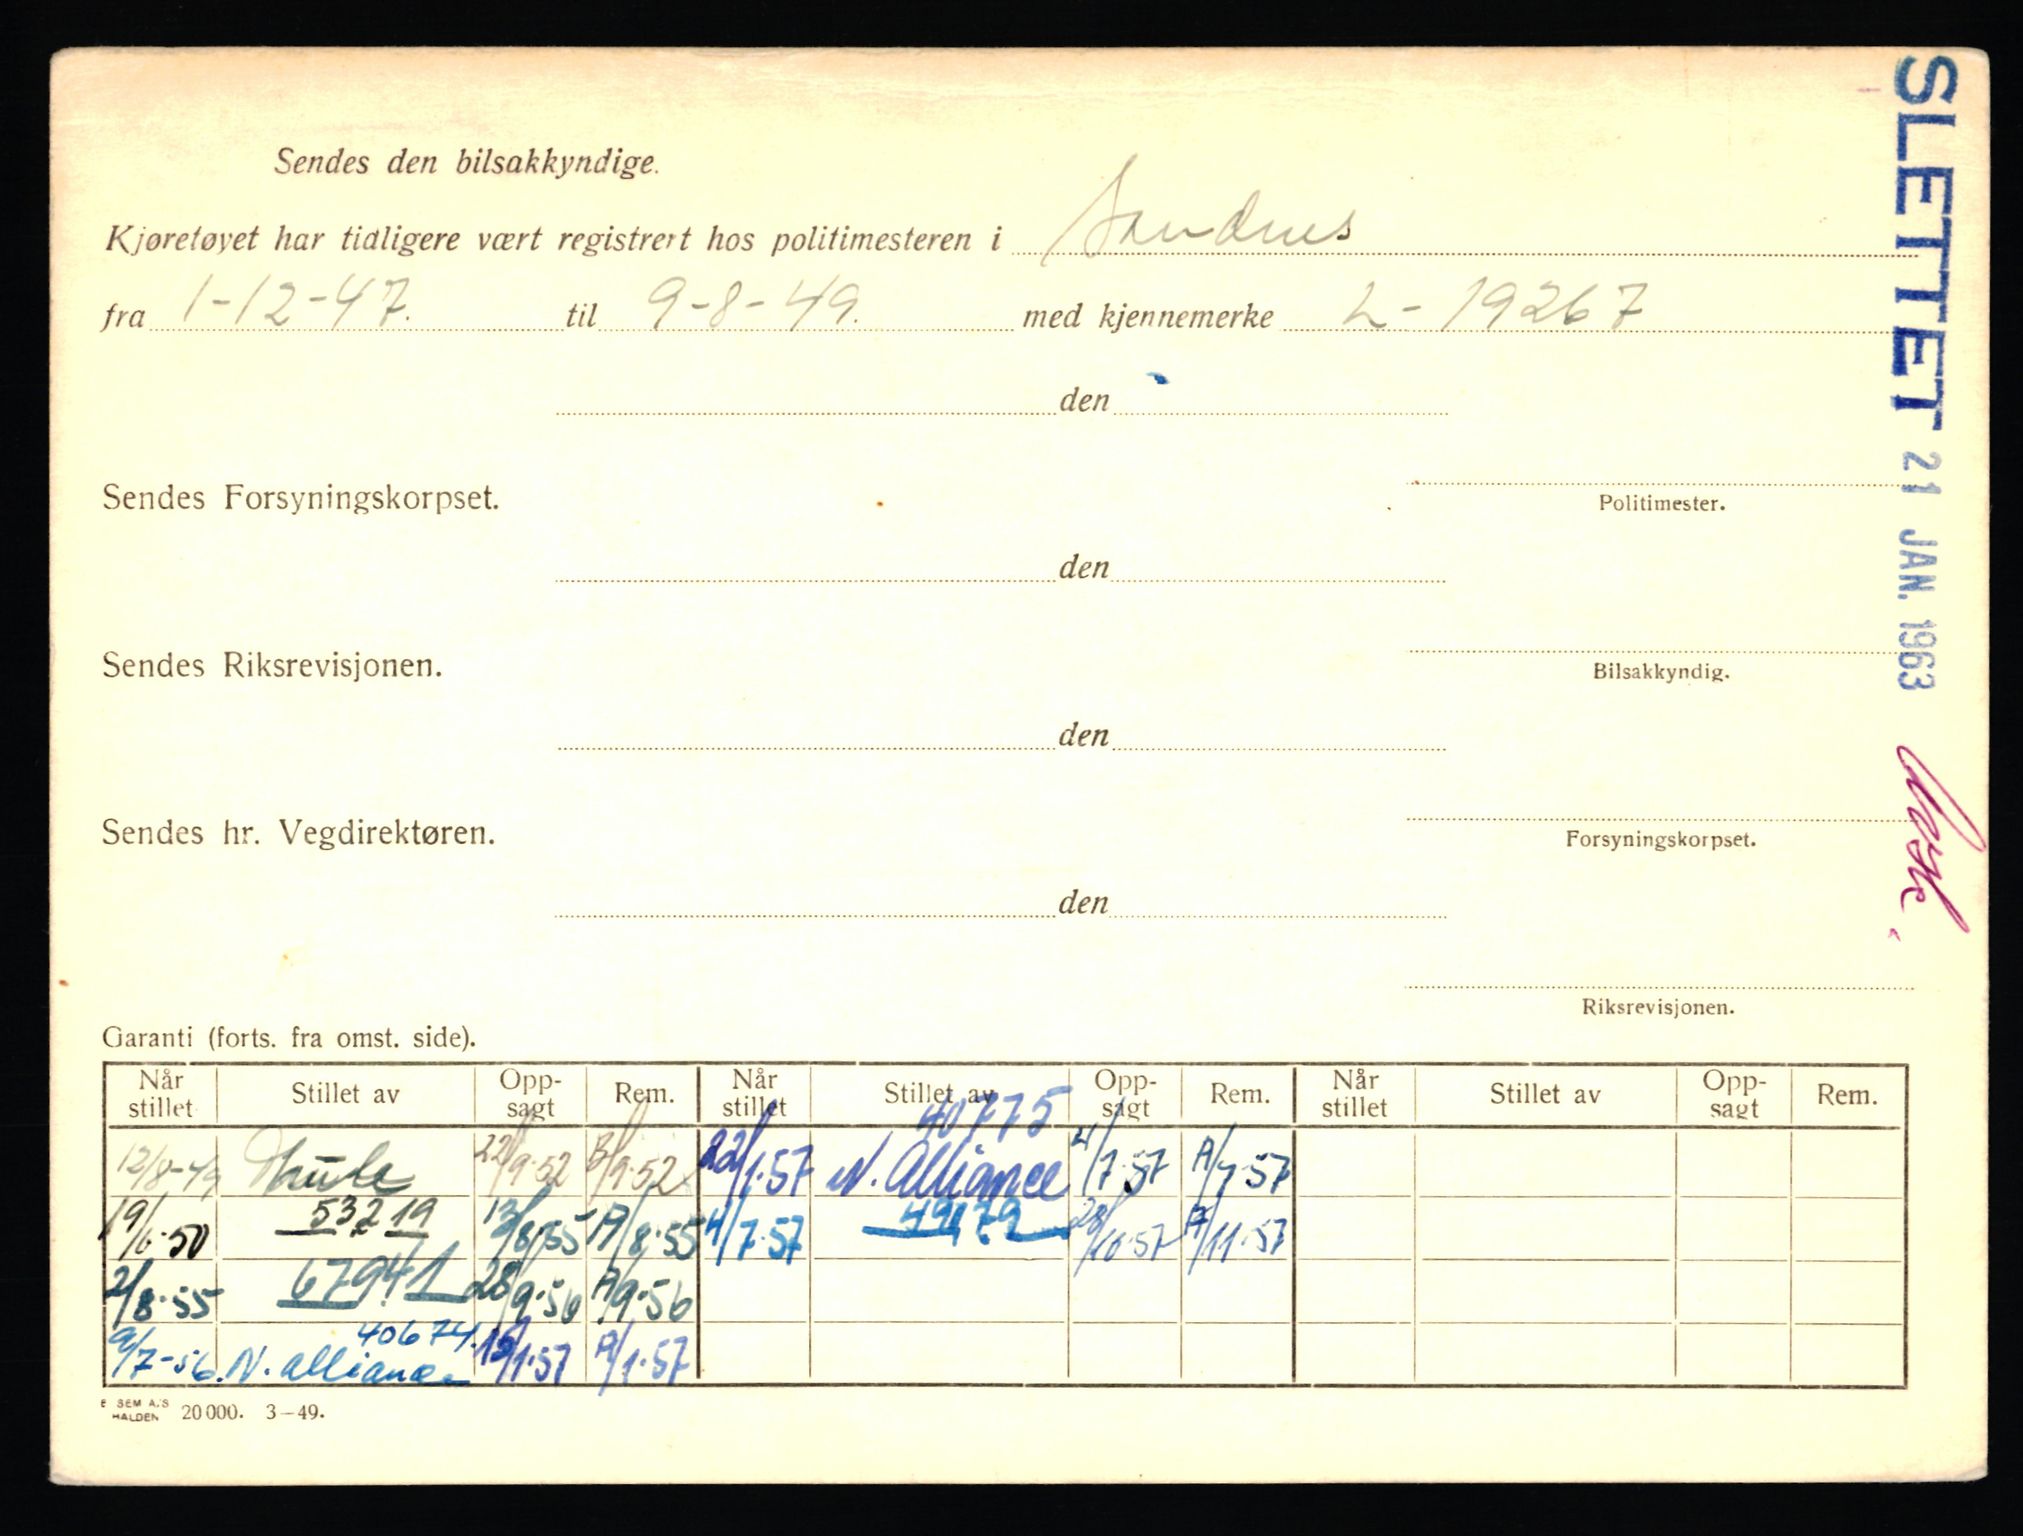 Sendes den bilsakkyndige.
Kjøretøyet har tidligere vært registrert hos politimesteren i Sandnes
fra 1-12-47. til 9-8-49. med kjennemerke L-19267
den
Sendes Forsyningskorpset.
Politimester.
den
Sendes Riksrevisjonen.
Bilsakkyndig.
den
Sendes hr. Vegdirektøren.
Forsyningskorpset.
den
Riksrevisjonen.
SLETTET 21 JAN. 1963
Garanti (forts. fra omst. side).
Når stillet Stillet av Opp-sagt Rem. Når stillet Stillet av Opp-sagt Rem. Når stillet Stillet av Opp-sagt Rem.
40775
12/8-49 Thule 22/9.52 /9.52 22/1.57 N. Alliance 4/7.57 A/7.57
19/6.50 53219 13/8.55 A/8.55 4/7.57 49179 28/10.57 A/11.57
2/8.55 67941 28/9.56 A/9.56
40674.
9/7-56. N. Alliance 15/1.57 A/1.57
SEM A/S HALDEN 20 000. 3-49.